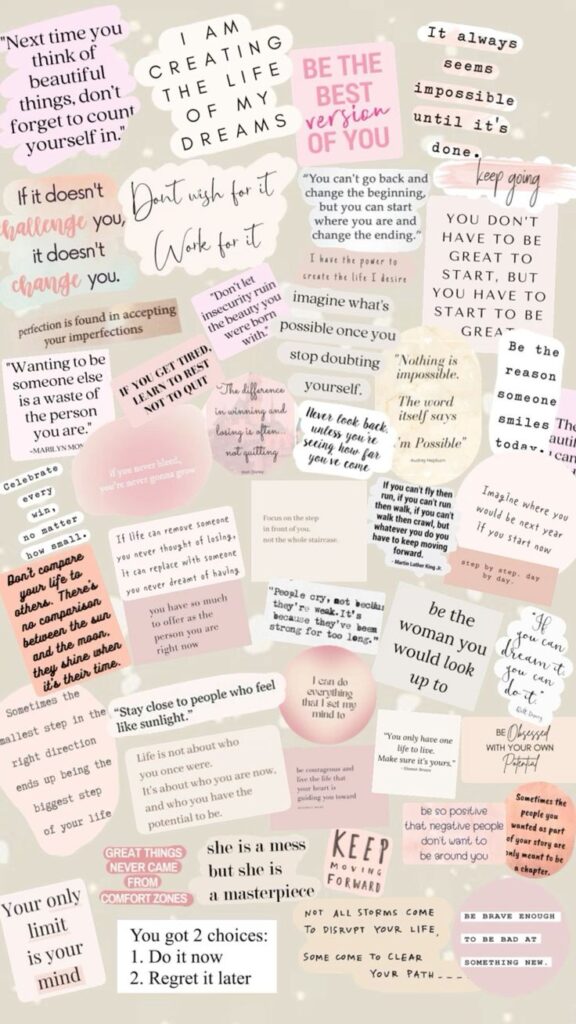 "Next time you
think of
beautiful
things, don't
forget to count
yourself in."
I AM
CREATING
THE LIFE
OF MY
DREAMS
BE THE
BEST
version
OF YOU
It always
seems
impossible
until it's
done.
keep going
If it doesn't
challenge you,
it doesn't
change you.
Dont wish for it
Work for it
"You can't go back and
change the beginning,
but you can start
where you are and
change the ending."
I have the power to
create the life I desire
YOU DON'T
HAVE TO BE
GREAT TO
START, BUT
YOU HAVE TO
START TO BE
GREAT
perfection is found in accepting
your imperfections
"Don't let
insecurity ruin
the beauty you
were born
with."
imagine what's
possible once you
stop doubting
yourself.
"Wanting to be
someone else
is a waste of
the person
you are."
-MARILYN MON
IF YOU GET TIRED,
LEARN TO REST
NOT TO QUIT
"The difference
in winning and
losing is often...
not quitting
Walt Disney
Never look back
unless you're
seeing how far
you've come
"Nothing is
impossible.
The word
itself says
I'm Possible"
Audrey Hepburn
Be the
reason
someone
smiles
today.
if you never bleed,
you're never gonna grow
Celebrate
every
win,
no matter
how small.
If life can remove someone
you never thought of losing,
it can replace with someone
you never dreamt of having
Focus on the step
in front of you,
not the whole staircase.
If you can't fly then
run, if you can't run
then walk, if you can't
walk then crawl, but
whatever you do you
have to keep moving
forward.
- Martin Luther King Jr.
Imagine where you
would be next year
if you start now
step by step. day
by day.
Don't compare
your life to
others. There's
no comparison
between the sun
and the moon,
they shine when
it's their time.
you have so much
to offer as the
person you are
right now
"People cry, not because
they're weak. It's
because they've been
strong for too long."
be the
woman you
would look
up to
"If
you can
dream it,
you can
do it."
Walt Disney
Sometimes the
smallest step in the
right direction
ends up being the
biggest step
of your life
"Stay close to people who feel
like sunlight."
I can do
everything
that I set my
mind to
Life is not about who
you once were.
It's about who you are now,
and who you have the
potential to be.
be courageous and
live the life that
your heart is
guiding you toward
"You only have one
life to live.
Make sure it's yours."
BE Obsessed
WITH YOUR OWN
Potential
be so positive
that negative people
don't want to
be around you
Sometimes the
people you
wanted as part
of your story are
only meant to be
a chapter.
GREAT THINGS
NEVER CAME
FROM
COMFORT ZONES
she is a mess
but she is
a masterpiece
KEEP
MOVING
FORWARD
Your only
limit
is your
mind
You got 2 choices:
1. Do it now
2. Regret it later
NOT ALL STORMS COME
TO DISRUPT YOUR LIFE,
SOME COME TO CLEAR
YOUR PATH---
BE BRAVE ENOUGH
TO BE BAD AT
SOMETHING NEW.